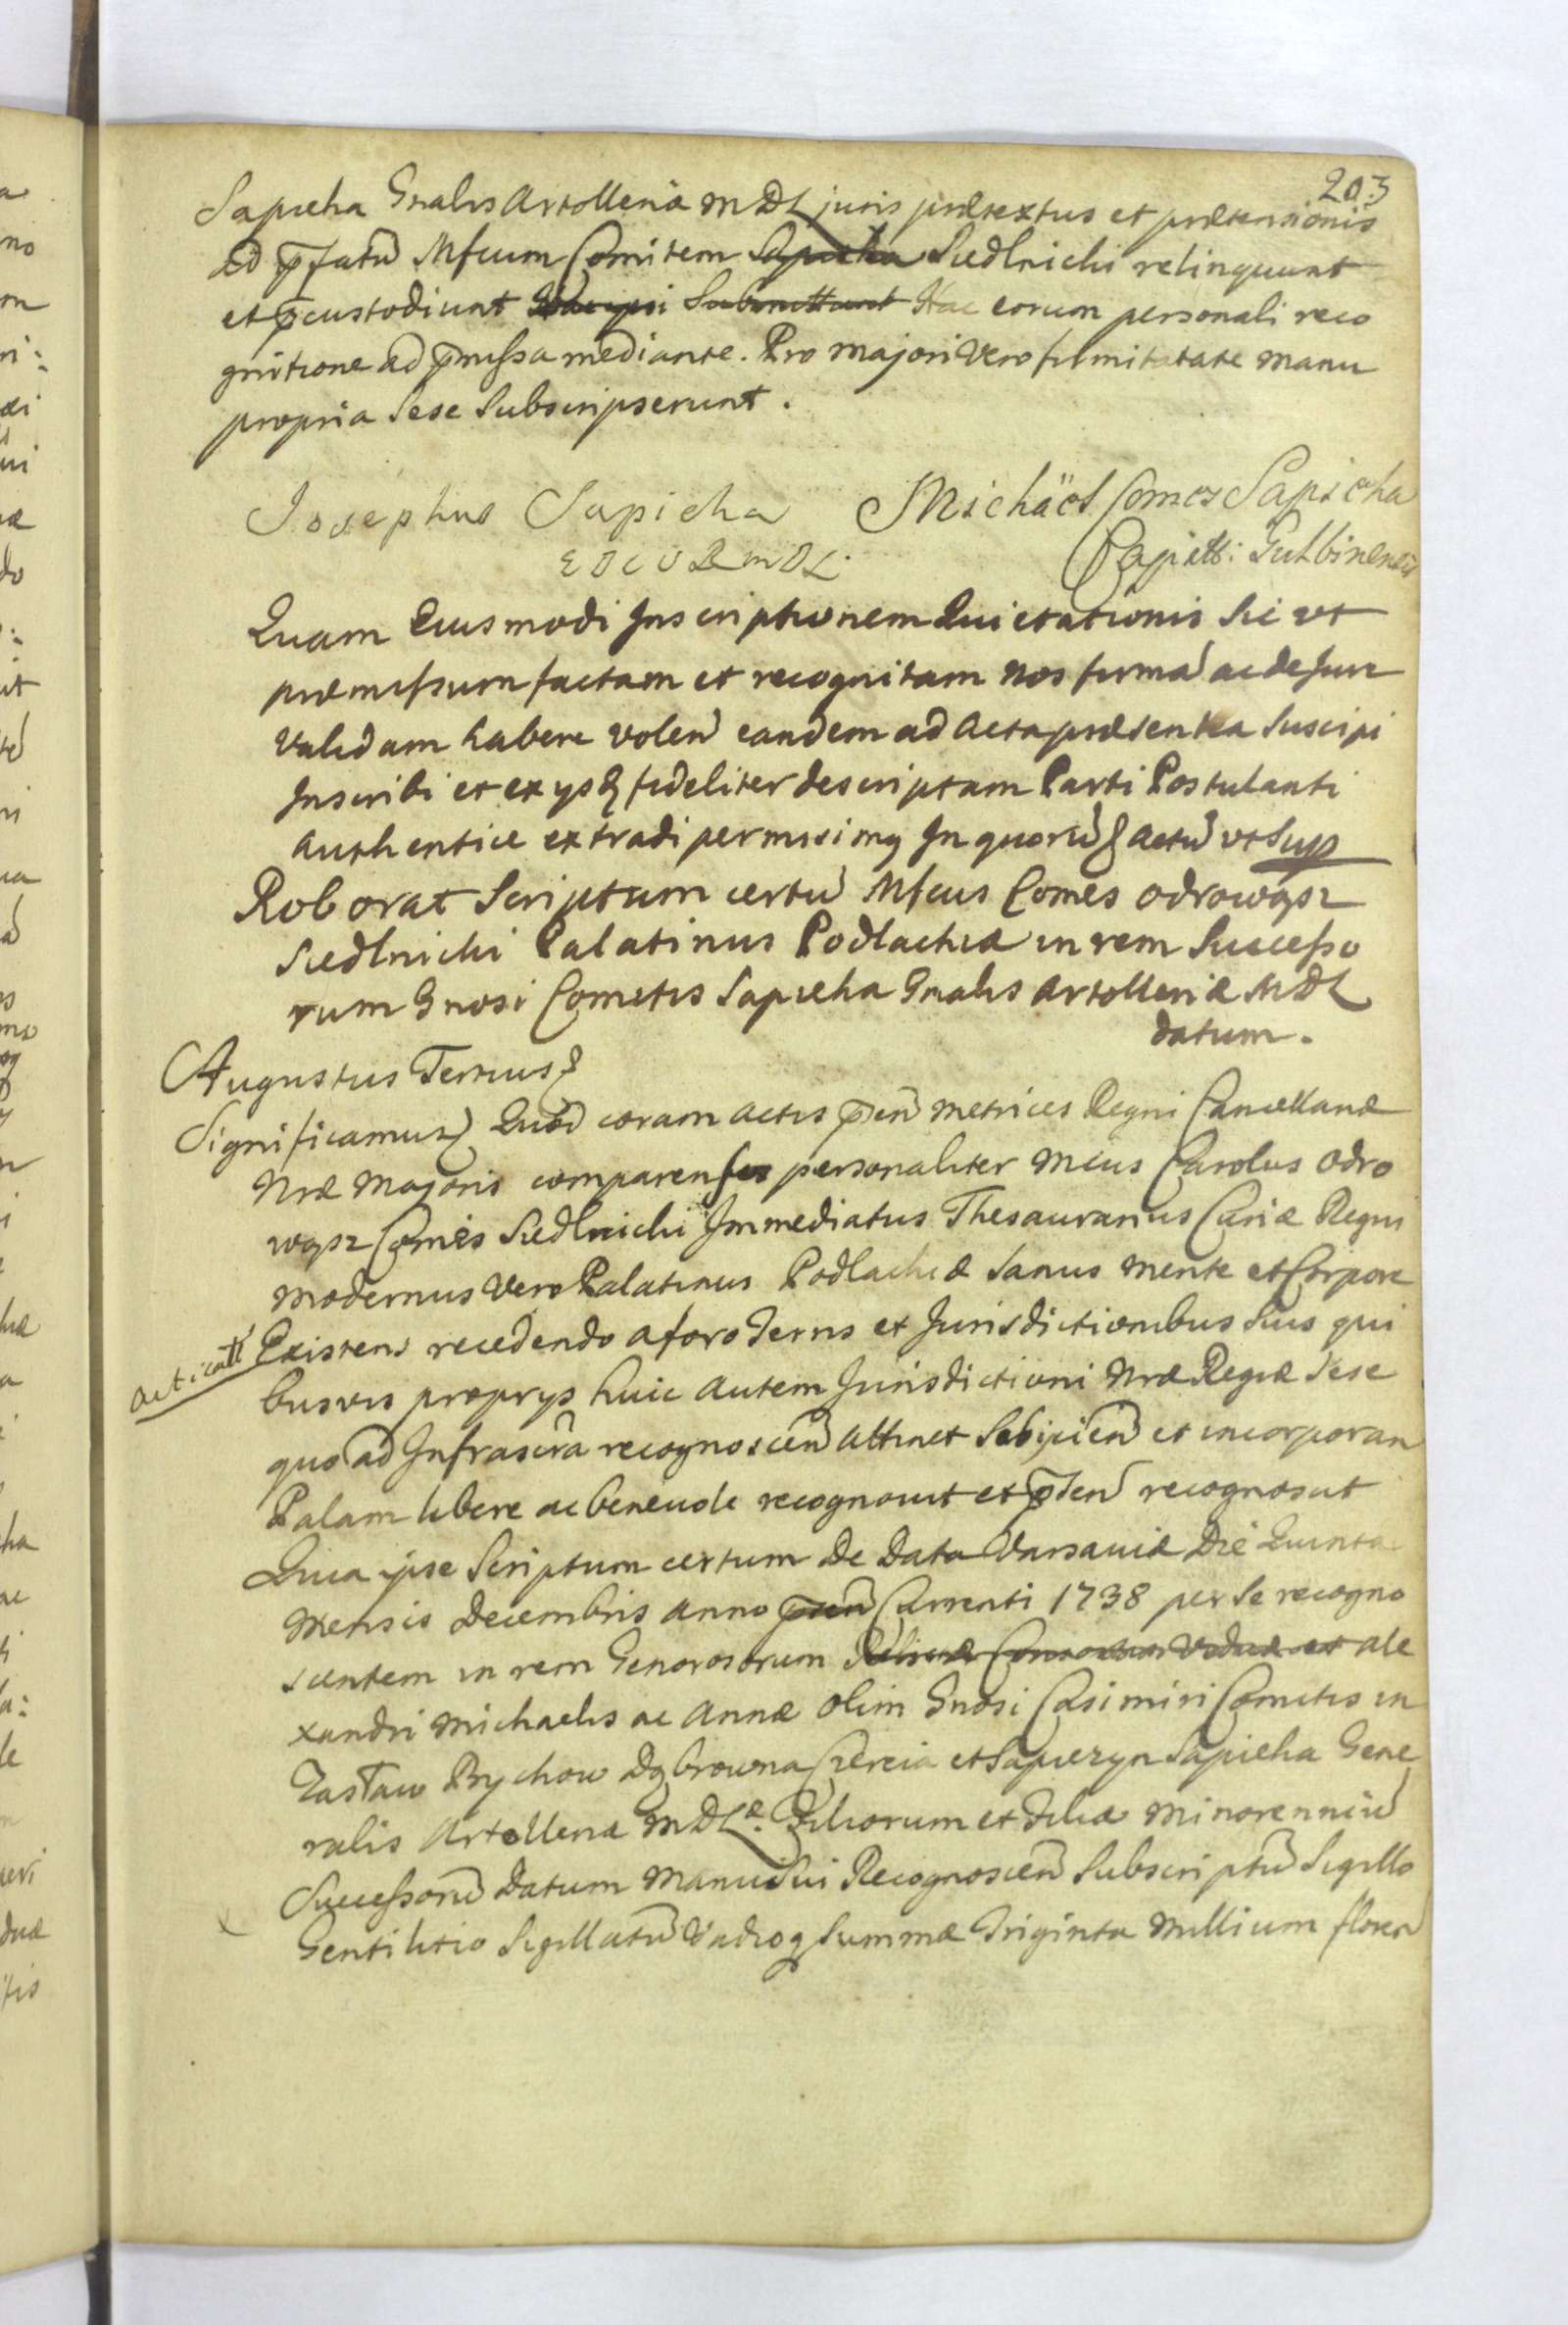 203
Sapieha Gnalis Artolleriæ MDL juris prætextus et prætensionis
ad p̄fatū Mfcum Comitem Sapieha Siedlnicki relinquunt
et p̄custodiunt Submittunt Hac eorum personali reco
gnitione ad p̄missa mediante. Pro majori vero firmitatate manu
propria Sese Subscripserunt.
Josephus Sapieha Michäel Comes Sapieha
Capitts: Guttbinensis
Quam Eiusmodi Inscriptionem Quietationis Sic ut
præmissum factam et recognitam Nos firmā ac de Jure
validam habere volen̄ eandem ad Acta præsentia Suscipi
Inscribi et ex ysq fideliter descriptam Parti Postulanti
authentice extradi permisimq In quorū Actū vt Sup
Roborat Scriptum certū Mfcus Comes Odrowąsz
Siedlnicki Palatinus Podlachiæ in rem Successo
rum Gnosi Comitis Sapieha Gnalis Artolleriæ MDL
datum.
Augustus Tertius
Significamus Quod coram Actis p̄sen̄ Metrices Regni Cancellariæ
Nræ Majoris comparens personaliter Mcus Carolus Odro
wąsz Comes Siedlnicki Immediatus Thesaurarius Curiæ Regni
modernus vero Palatinus Podlachiæ Sanus mente et Corpore
acticatt
Existens recedendo a foro Terris et Jurisdictionibus Suis qui
busvis proprys huic autem Jurisdictioni Nræ Regiæ Sese
quo ad Infrascra recognoscen̄ attinet Subijcien̄ et incorporan
Palam libere ac benevole recognovit et p̄sen̄ recognoscit
Quia ipse Scriptum certum De Data Varsaviæ Die Quinta
Mensis Decembris Anno p̄sen̄ Currenti 1738 per Se recogno
scentem in rem Generosorum Relictæ Consortis Viduæ et Ale
xandri Michaelis ac Annæ olim Gnosi Casimiri Comitis in
Zasław Bychow Dąbrowna Czereia et Sapiezyn Sapieha Gene
ralis Artolleriæ MDLæ. Filiorum et Filiæ Minorenniū
Successorū Datum Manu Sui Recognoscen̄ Subscriptū Sigillo
Gentilitio Sigillatū Summæ Triginta Millium floren